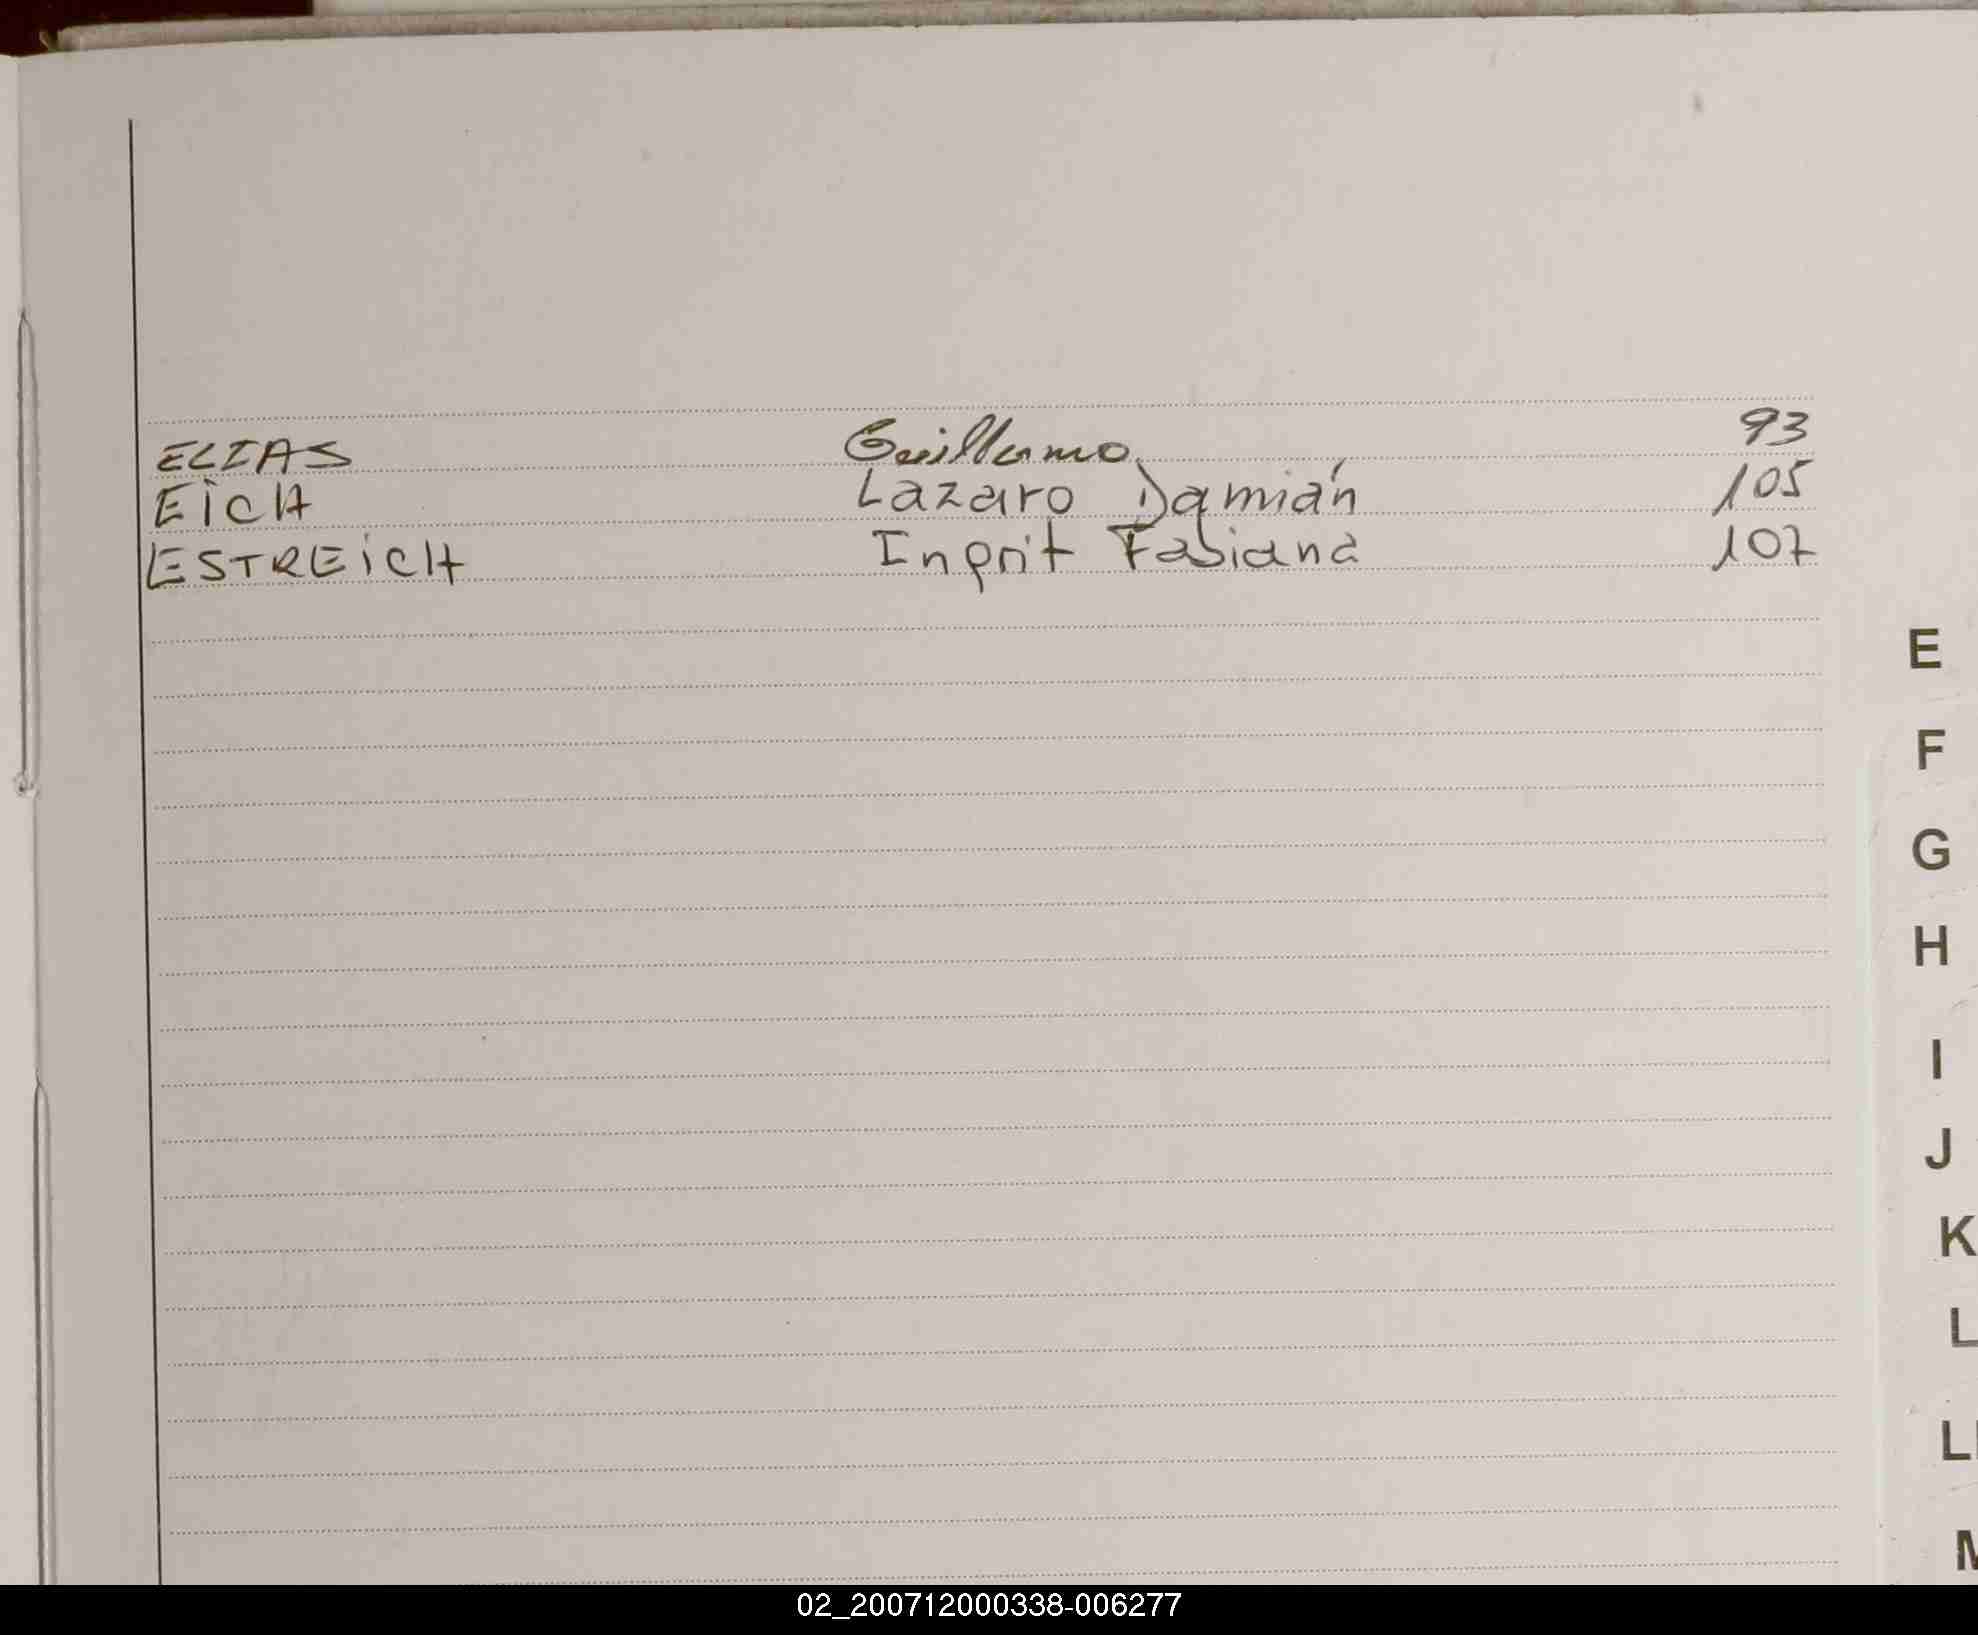 ELIAS Guillermo 93
EICH Lazaro Damián 105
ESTREICH Ingrit Fabiana 107
E
F
G
H
I
J
K
L
LL
M
02_200712000338-006277